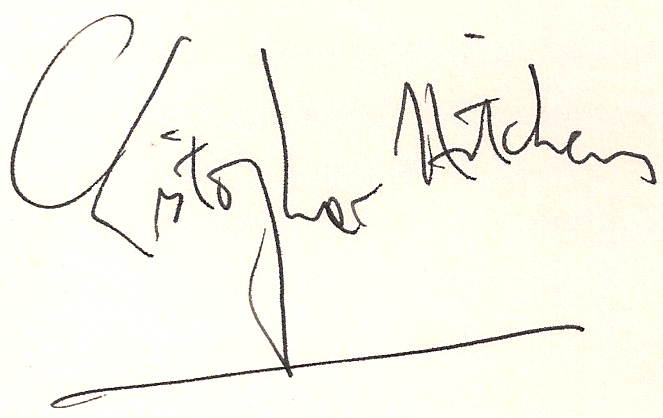 Christopher Hitchens